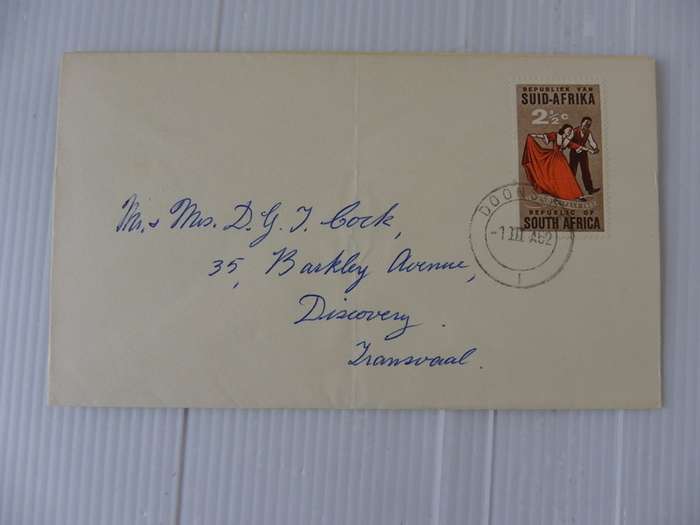 REPUBLIEK VAN
SUID-AFRIKA
2½c
REPUBLIC OF
SOUTH AFRICA
-1 III A62
1
Mr. & Mrs. D. G. T. Cock,
35, Barkley Avenue,
Discovery.
Transvaal.